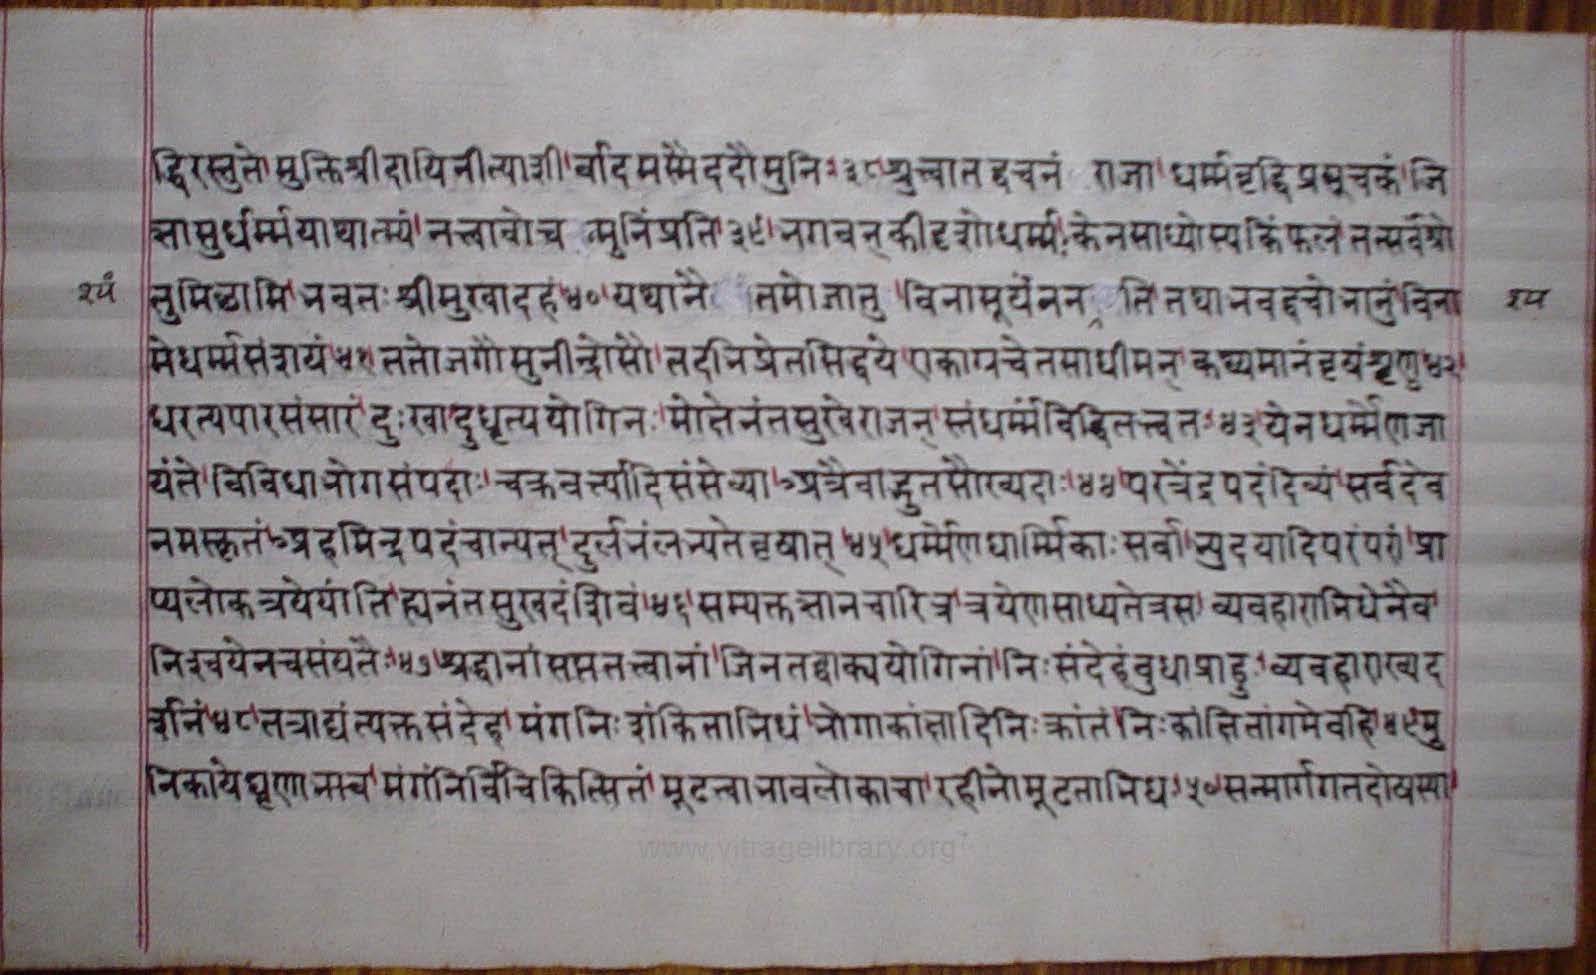 द्धिरस्तुते मुक्तिश्रीदायिनीत्याशीर्वादमस्मै ददौ मुनिः ३८ श्रुत्वा तद्वचनं राजा धर्म्मवृद्धिप्रसूचकं जि
ज्ञासुर्धर्म्मयाथात्म्यं नत्वावोच न्मुनिं प्रति ३९ भगवन् कीदृशो धर्म्मः केन साध्योस्य किं फलं तत्सर्वं श्रो
२५ तुमिछामि भवतः श्रीमुखादहं ४० यथा नै तमो जातु विना सूर्येन न ति तथा भवद्वचो भानुं विना २५
मे धर्म्मसंशयं ४१ ततो जगौ मुनीन्द्रोसौ तदभिप्रेतसिद्धये एकाग्रचेतसा धीमन् कथ्यमानं वृषं शृणु ४२
धरत्यपारसंसार दुःखादुद्धृत्य योगिनः मोक्षेनंतसुखे राजन् स्तं धर्म्मं विद्धि तत्त्वतः ४३ येन धर्म्मेण जा
यंते विविधा भोगसंपदाः चक्रवर्त्यादिसंसेव्या ऽत्रैवाद्भुतसौख्यदाः ४४ परत्रेंद्रपदं दिव्यं सर्वदेव
नमस्कृतं ऽहमिन्द्रपदं चान्यत् दुर्लभं लभ्यते वृषात् ४५ धर्म्मेण धार्म्मिकाः सर्वाभ्युदयादिपरंपरां प्रा
प्य लोकत्रये यांति ह्यनंतसुखदं शिवं ४६ सम्यक्तज्ञानचारित्र त्रयेण साध्यतेत्र स व्यवहाराभिधेनैव
निश्चयेन च संयतैः ४७ श्रद्दानां सप्ततत्त्वानां जिनतद्वाक्ययोगिनां निःसंदेहं बुधा प्राहु व्यवहाराख्यद
र्शनं ४८ तत्राद्यं त्यक्तसंदेह मंगनिःशंकिताभिधं भोगाकांक्षादिनिःक्रांतं निःकांक्षितांगमेव हि ४९ मु
निकाये घृणा मंगं निर्विचिकित्सितं मूढत्वाभावलोकाचा रहीनो मूढताभिध ५० सन्मार्गगतदोष
www.vitragelibrary.org